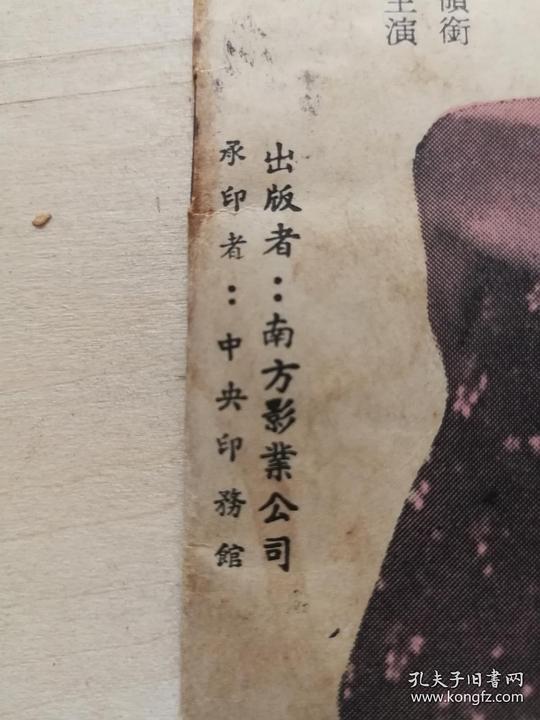 領銜
主演
出版者：南方影業公司
承印者：中央印務館
孔夫子旧书网
www.kongfz.com